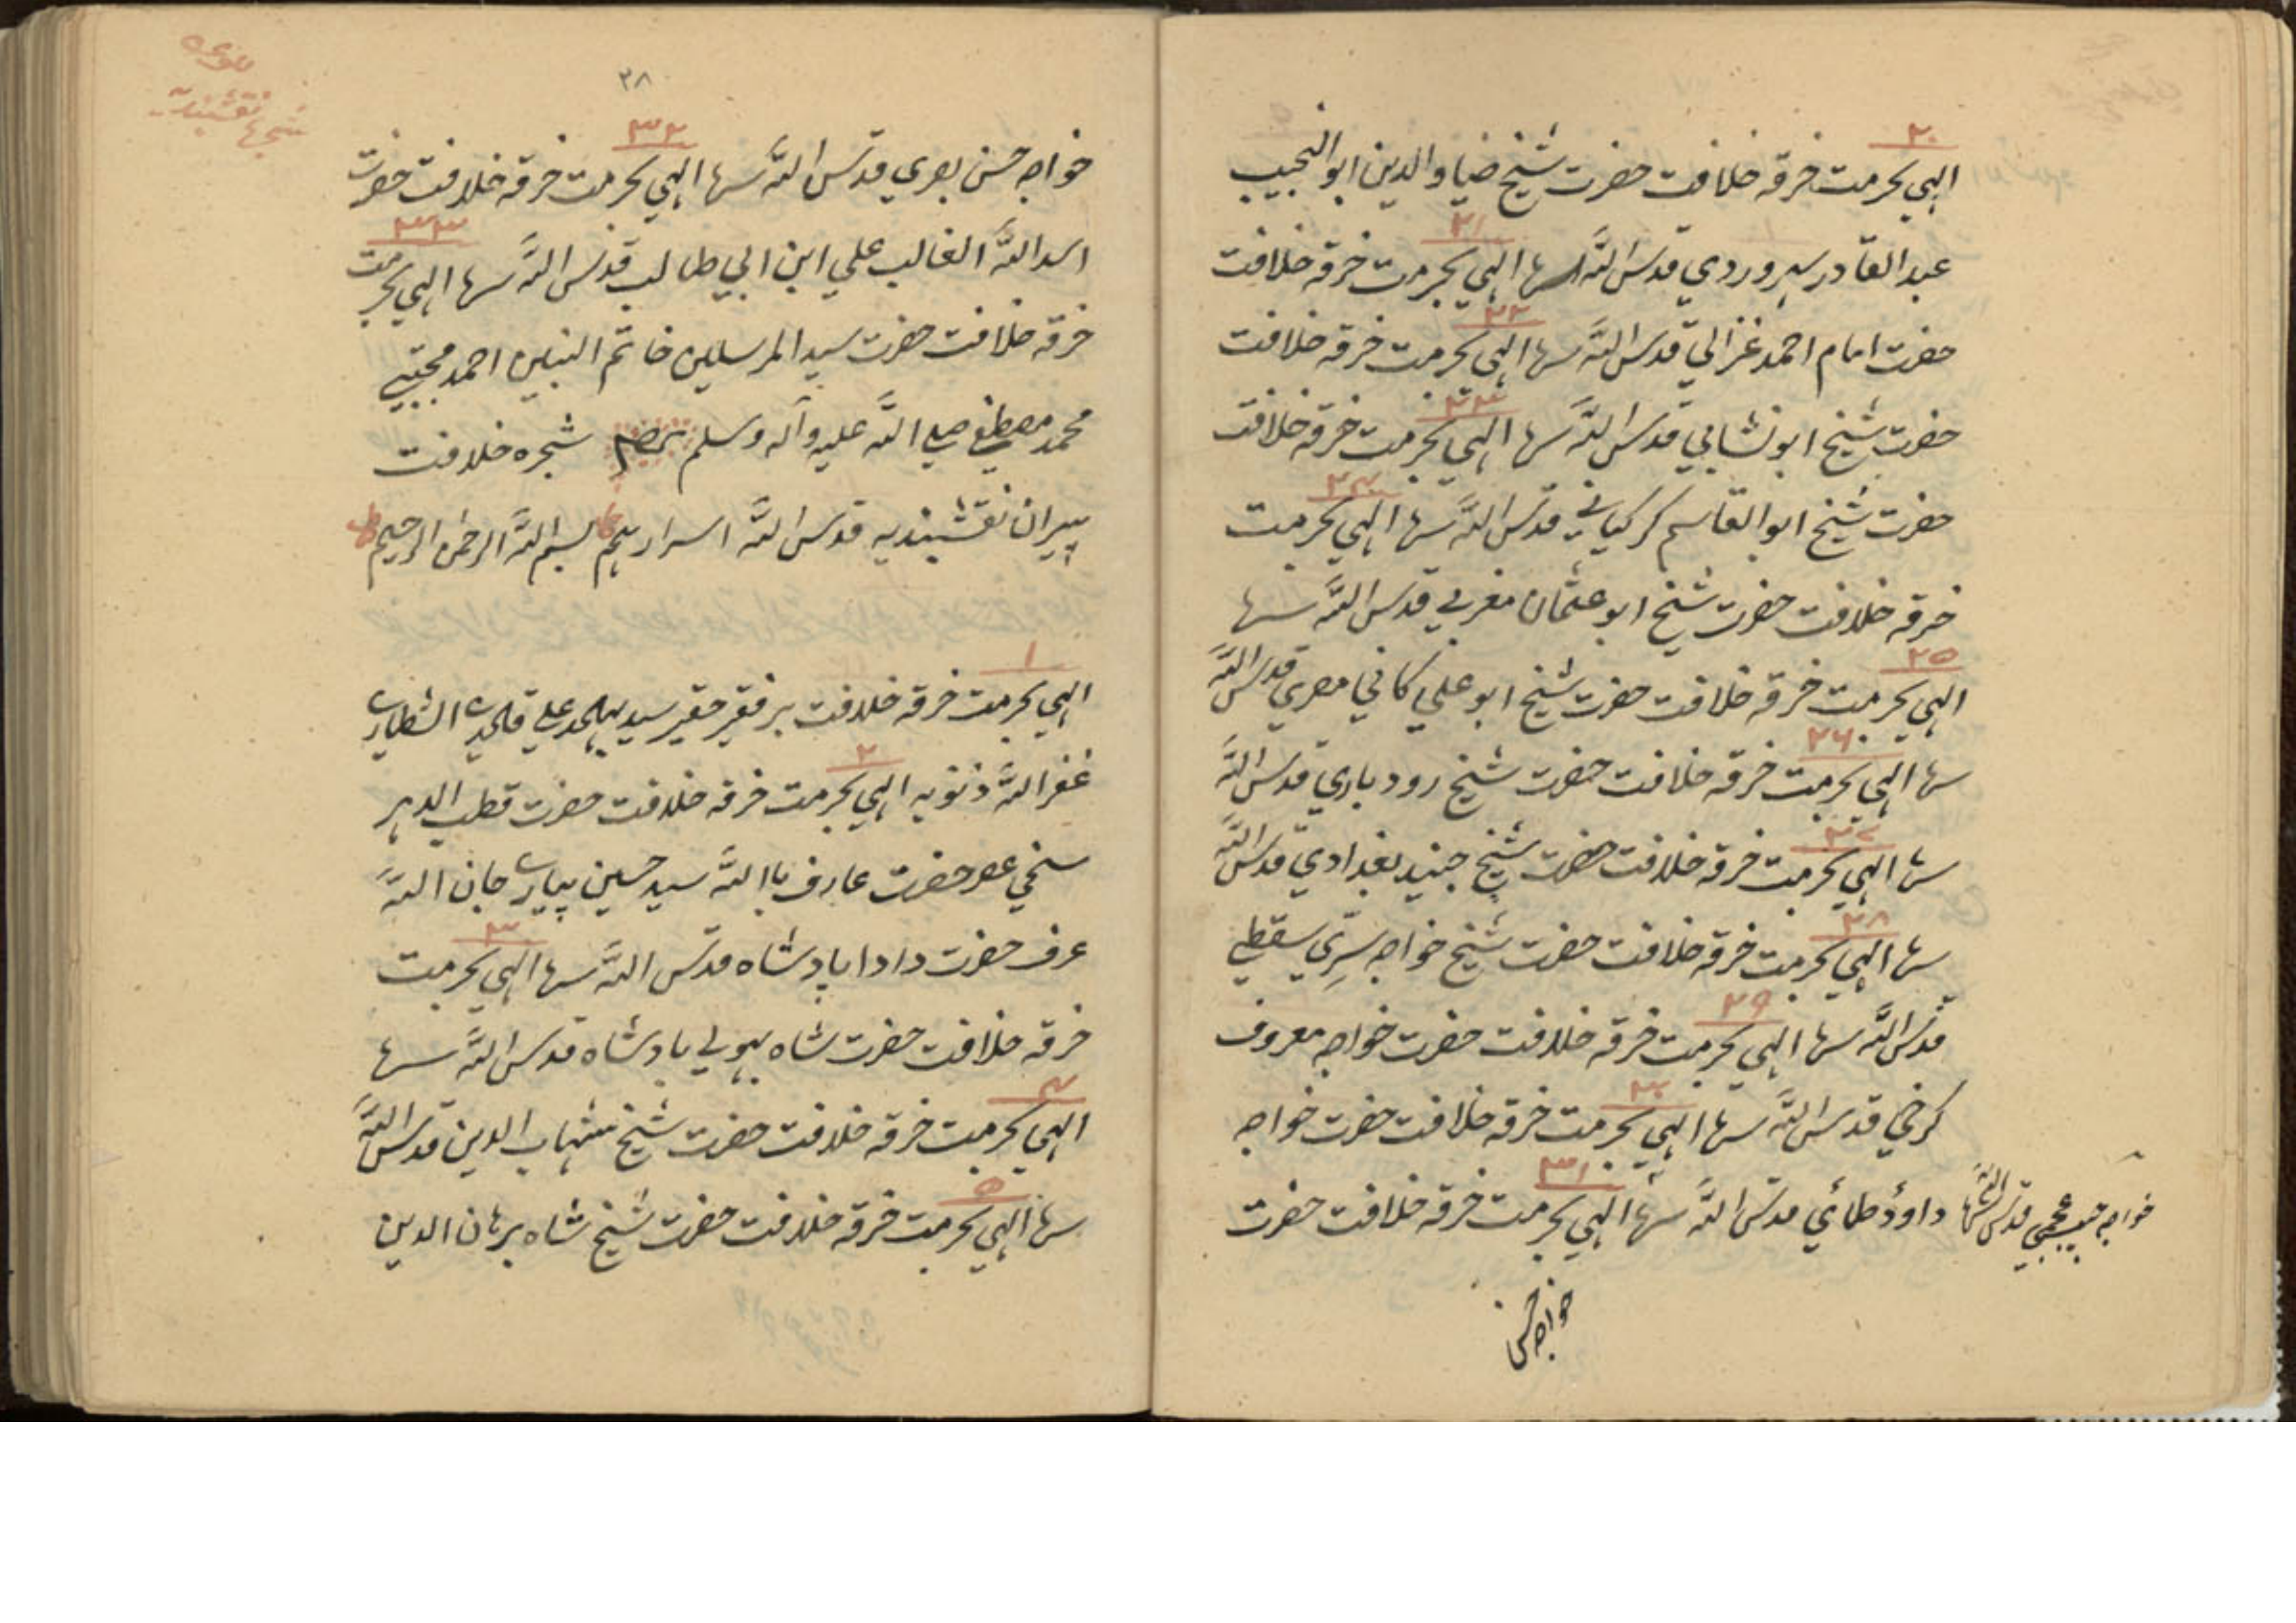 ۲۰
الهي بحرمت خرقه خلافت حضرت شيخ ضياء الدين ابو النجيب
۲۱
عبد القادر سهروردي قدس الله سرها الهي بحرمت خرقه خلافت
۲۲
حضرت امام احمد غزالي قدس الله سرها الهي بحرمت خرقه خلافت
۲۳
حضرت شيخ ابو نشابي قدس الله سرها الهي بحرمت خرقه خلافت
۲۴
حضرت شيخ ابو القاسم كركياني قدس الله سرها الهي بحرمت
خرقه خلافت حضرت شيخ ابو عثمان مغربي قدس الله سرها
۲۵
الهي بحرمت خرقه خلافت حضرت شيخ ابو علي كاتي مصري قدس الله
۲۶
سرها الهي بحرمت خرقه خلافت حضرت شيخ رود باري قدس الله
۲۷
سرها الهي بحرمت خرقه خلافت حضرت شيخ جنيد بغدادي قدس الله
۲۸
سرها الهي بحرمت خرقه خلافت حضرت شيخ خواجه سري سقطي
۲۹
قدس الله سرها الهي بحرمت خرقه خلافت حضرت خواجه معروف
۳۰
كرخي قدس الله سرها الهي بحرمت خرقه خلافت حضرت خواجه
۳۱
داوٗد طائي قدس الله سرها الهي بحرمت خرقه خلافت حضرت
خواجه حبيب عجمي قدس الله سرها
خواجه حسن
۳۸
شجرهٔ نقشبنديه
۳۲
خواجه حسن بصري قدس الله سرها الهي بحرمت خرقه خلافت حضرت
۳۳
اسد الله الغالب علي ابن ابي طالب قدس الله سرها الهي بحرمت
خرقه خلافت حضرت سيد المرسلين خاتم النبين احمد مجتبي
محمد مصطفي صلي الله عليه وآله وسلم شجره خلافت
پيران نقشبنديه قدس الله اسرارهم بسم الله الرحمن الرحيم
۱
الهي بحرمت خرقه خلافت بر فقير حقير سيد علي الشطاري
۲
غفر الله ذنوبه الهي بحرمت خرقه خلافت حضرت قطب الدهر
سخي عصر حضرت عارف باالله سيد حسين پيارے جان الله
۳
عرف حضرت دادا پادشاه قدس الله سرها الهي بحرمت
خرقه خلافت حضرت شاه بهولي پادشاه قدس الله سرها
۴
الهي بحرمت خرقه خلافت حضرت شيخ شهاب الدين قدس الله
۵
سرها الهي بحرمت خرقه خلافت حضرت شيخ شاه برهان الدين